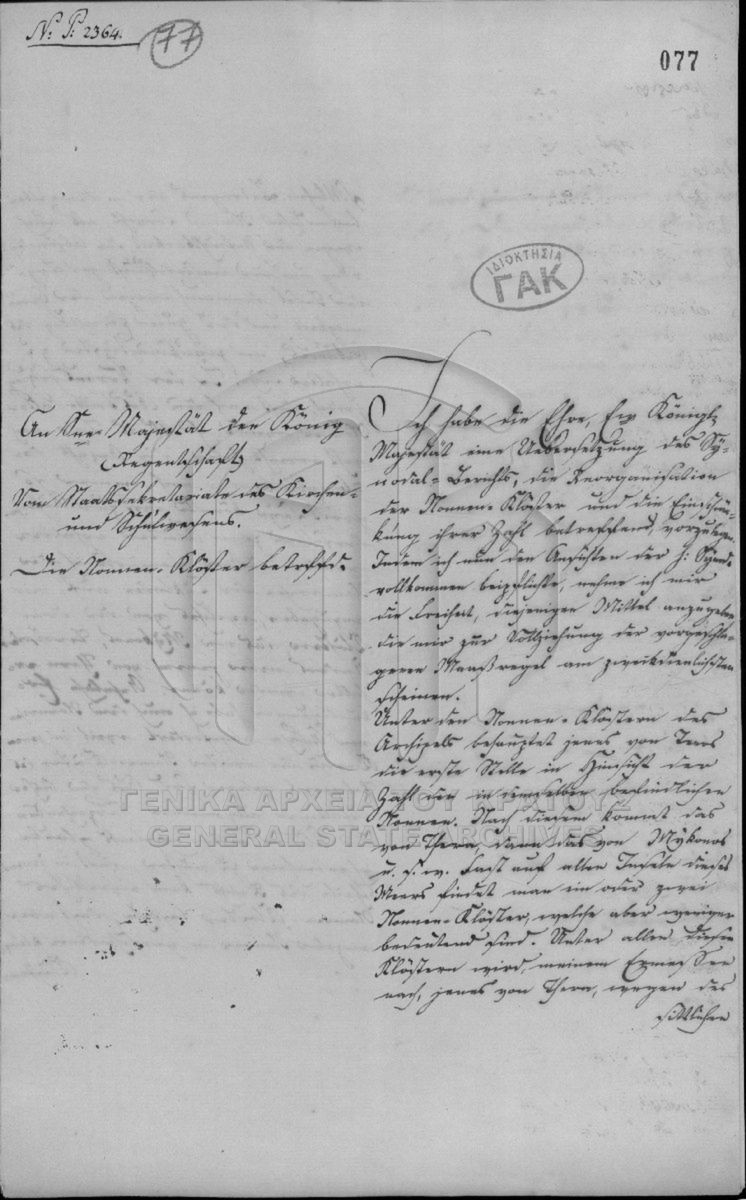 N: P: 2364.
77
077
ΙΔΙΟΚΤΗΣΙΑ
ΓΑΚ
An Sne Majestät den König
(Regentschaft)
Vom Staatssekretariate des Kirchen-
und Schulwesens.
Die Nonnen-Klöster betreffd.
Ich habe die Ehre, Ew Königl.
Majestät eine Uebersetzung des Sy-
nodal-Berichts, die Reorganisation
der Nonnen-Klöster und die Einschrän-
kung ihrer Zahl betreffend, vorzulegen.
Indem ich nun den Ansichten der h: Synode
vollkommen beipflichte, nehme ich mir
die Freiheit, diejenigen Mittel anzugeben
die mir zur Vollziehung der vorgeschla-
genen Maaßregel am zweckdienlichsten
scheinen.
Unter den Nonnen-Klöstern des
Archipels behauptet jenes von Tenos
die erste Stelle in Hinsicht der
Zahl der in demselben befindlichen
Nonnen. Nach diesem kommt das
von Thera, dann das von Mykonos
u. s. w. Fast auf allen Inseln dieses
Meers findet man ein oder zwei
Nonnen-Klöster, welche aber weniger
bedeutend sind. Unter allen diesen
Klöstern wird, meinem Ermessen
nach, jenes von Thera, wegen des
sittlichen
ΓΕΝΙΚΑ ΑΡΧΕΙΑ ΤΟΥ ΚΡΑΤΟΥΣ
GENERAL STATE ARCHIVES